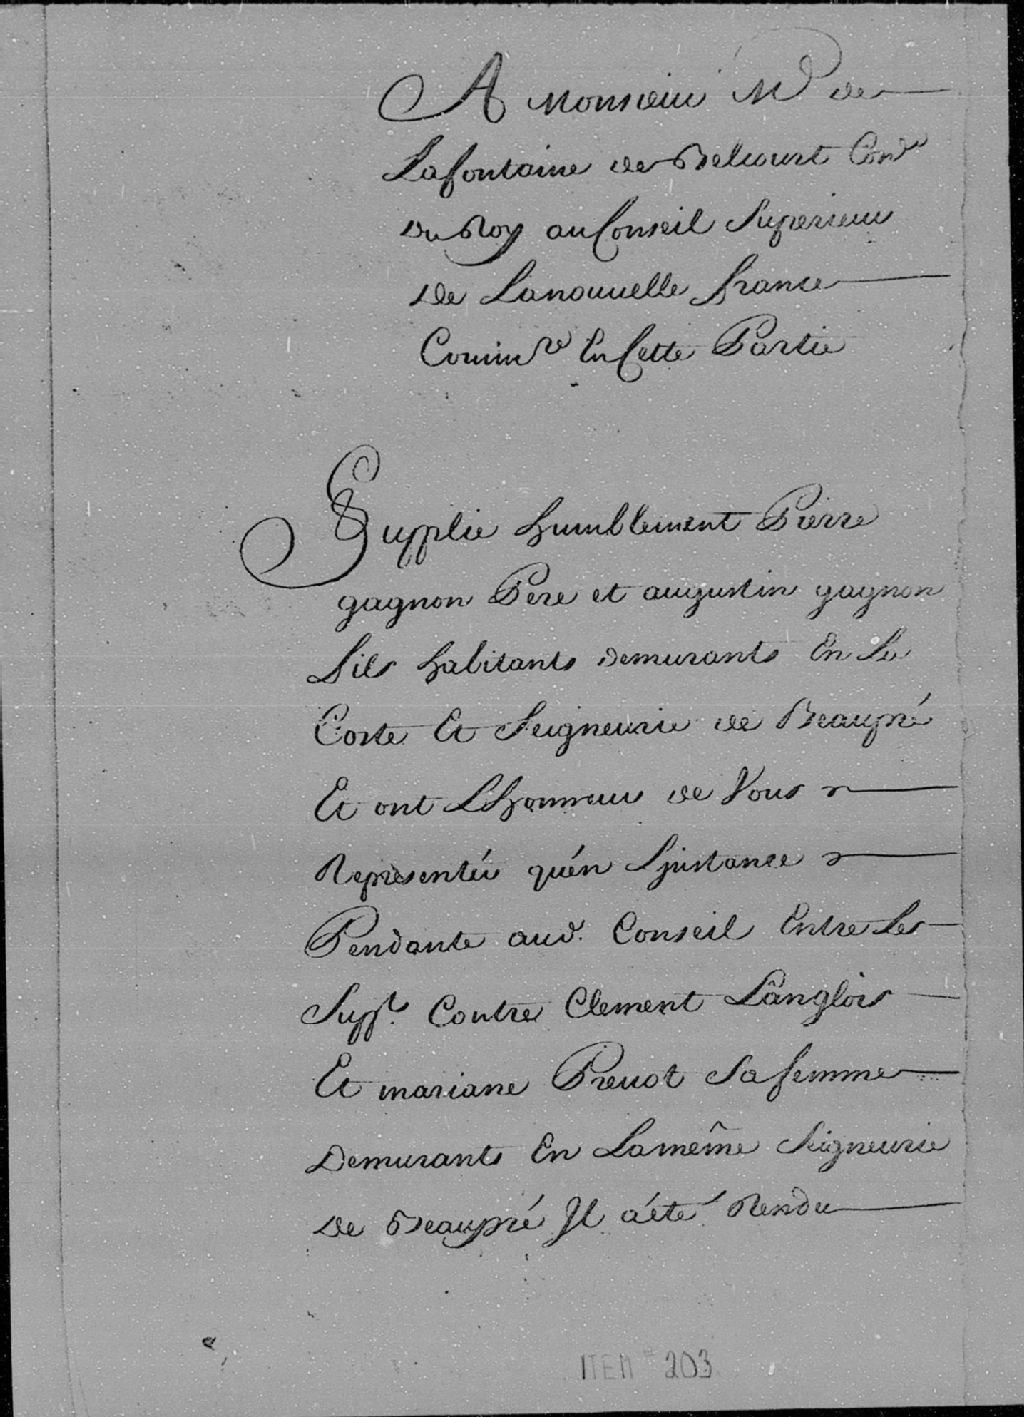 A Monsieur Mr de
Lafontaine de Belcourt Conr
Du Roy au Conseil Superieur
De Lanouuelle france
Commre En Cette Partie
Supplie humblement Pierre
gagnon Pere et augustin gagnon
fils habitants Demurants En La
Coste Et Seigneurie de Beaupré
Et ont Lhonneur de Vous
Representér quén Linstance
Pendante aud. Conseil Entre Les
Suppt. Contre Clement Lânglois
Et mariane Preuot Sa femme
Demurants En Lamême Seigneurie
De Beaupré Jl a'été Rendu
ITEM 203